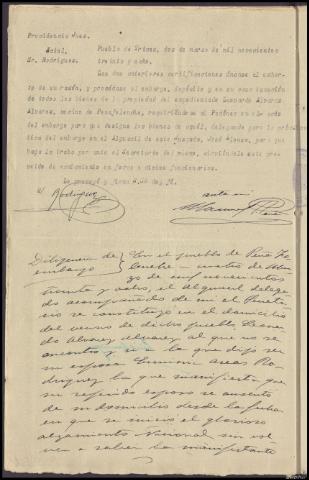 Providencia Juez.
Acial.
Sr. Rodriguez.
Pueblo de Trives, dos de marzo de mil novecientos
treinta y ocho.
Las dos anteriores certificaciones únanse al exhor-
to de su razón, y procédase al embargo, depósito y en su caso tasación
de todos los bienes de la propiedad del expedientado Leonardo Alvarez
Alvarez, vecino de Penafolenche, requiriéndose al
del embargo para que designe los bienes de aquél, delegando para la práctica
del embargo en el Alguacil de este Juzgado, José Alonso, para que
haga la traba por ante el Secretario del mismo, sirviéndole esta provi-
dencia de mandamiento en forma a dichos funcionarios.
Lo proveyó y firma S.Sª doy fé.
Rodriguez
ante mi
Diligencia de
embargo
En el pueblo de Pena Fo-
lenche cuatro de Mar-
zo de mil novecientos
treinta y ocho, el alguacil delega-
do acompañado de mi el Secreta-
rio se constituyó en el domicilio
del vecino de dicho pueblo, Leonar-
do Alvarez Alvarez al que no se
encontró y si a la que dijo ser
su esposa Arias Ro-
driguez la que manifiesta que
su referido esposo se ausentó
de su domicilio desde la fecha
en que se inició el glorioso
alzamiento Nacional sin vol-
ver a saber la manifestante